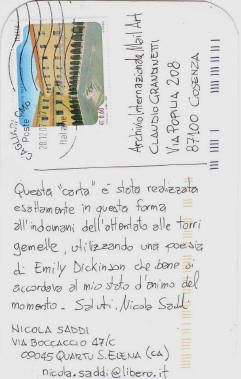 CAGLIARI CMP
Poste
Italiane
€0,60
Archivio Internazionale Mail Art
CLAUDIO GRANDINETTI
VIA POPILIA 208
87100 COSENZA
Questa "carta" è stata realizzata
esattamente in questa forma
all'indomani dell'attentato alle torri
gemelle, utilizzando una poesia
di Emily Dickinson che bene si
accordava al mio stato d'animo del
momento - Saluti. Nicola Saddi
NICOLA SADDI
VIA BOCCACCIO 47/C
09045 QUARTU S. ELENA (CA)
nicola.saddi@libero.it